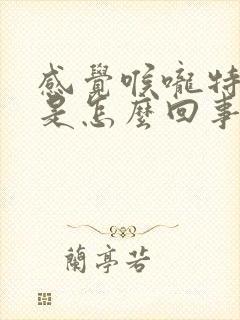 感覺喉嚨特
是怎麼回事
蘭亭若